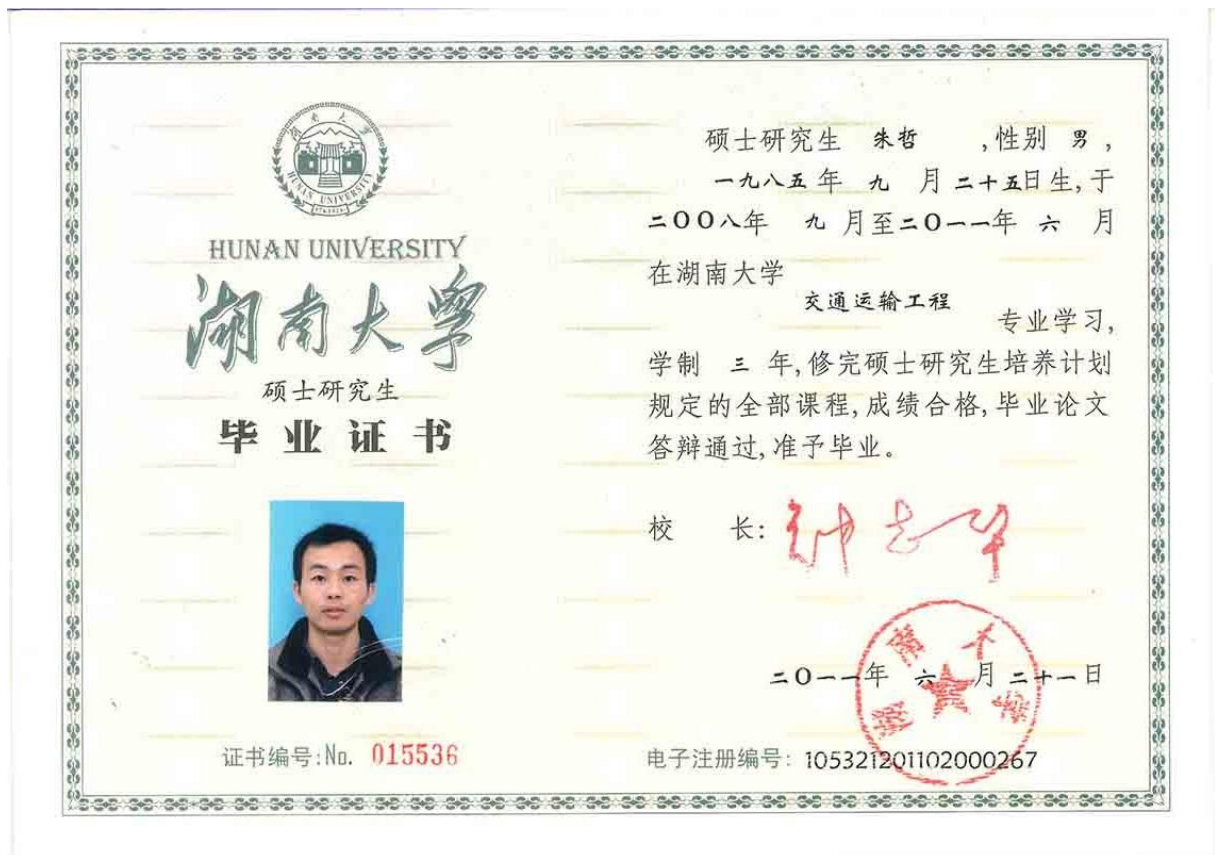 湖南大学
HUNAN UNIVERSITY
HUNAN UNIVERSITY
湖南大学
硕士研究生
毕业证书
证书编号:No. 015536
硕士研究生 朱哲 ,性别 男,
一九八五年 九 月二十五日生,于
二00八年 九 月至二0一一年 六 月
在湖南大学
交通运输工程
专业学习,
学制 三 年,修完硕士研究生培养计划
规定的全部课程,成绩合格,毕业论文
答辩通过,准予毕业。
校 长: 钟志华
二0一一年 六 月二十一日
湖南大学
电子注册编号: 105321201102000267